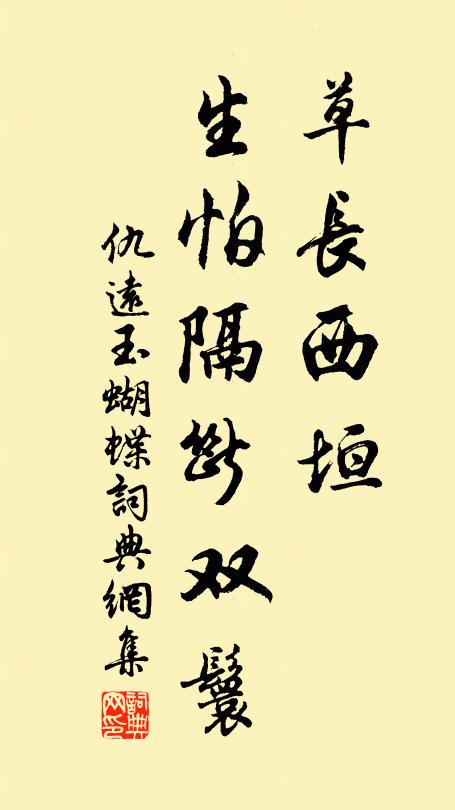 草長西垣
生怕隔斷双鬟
仇遠玉蝴蝶詞典網集
詞典网印